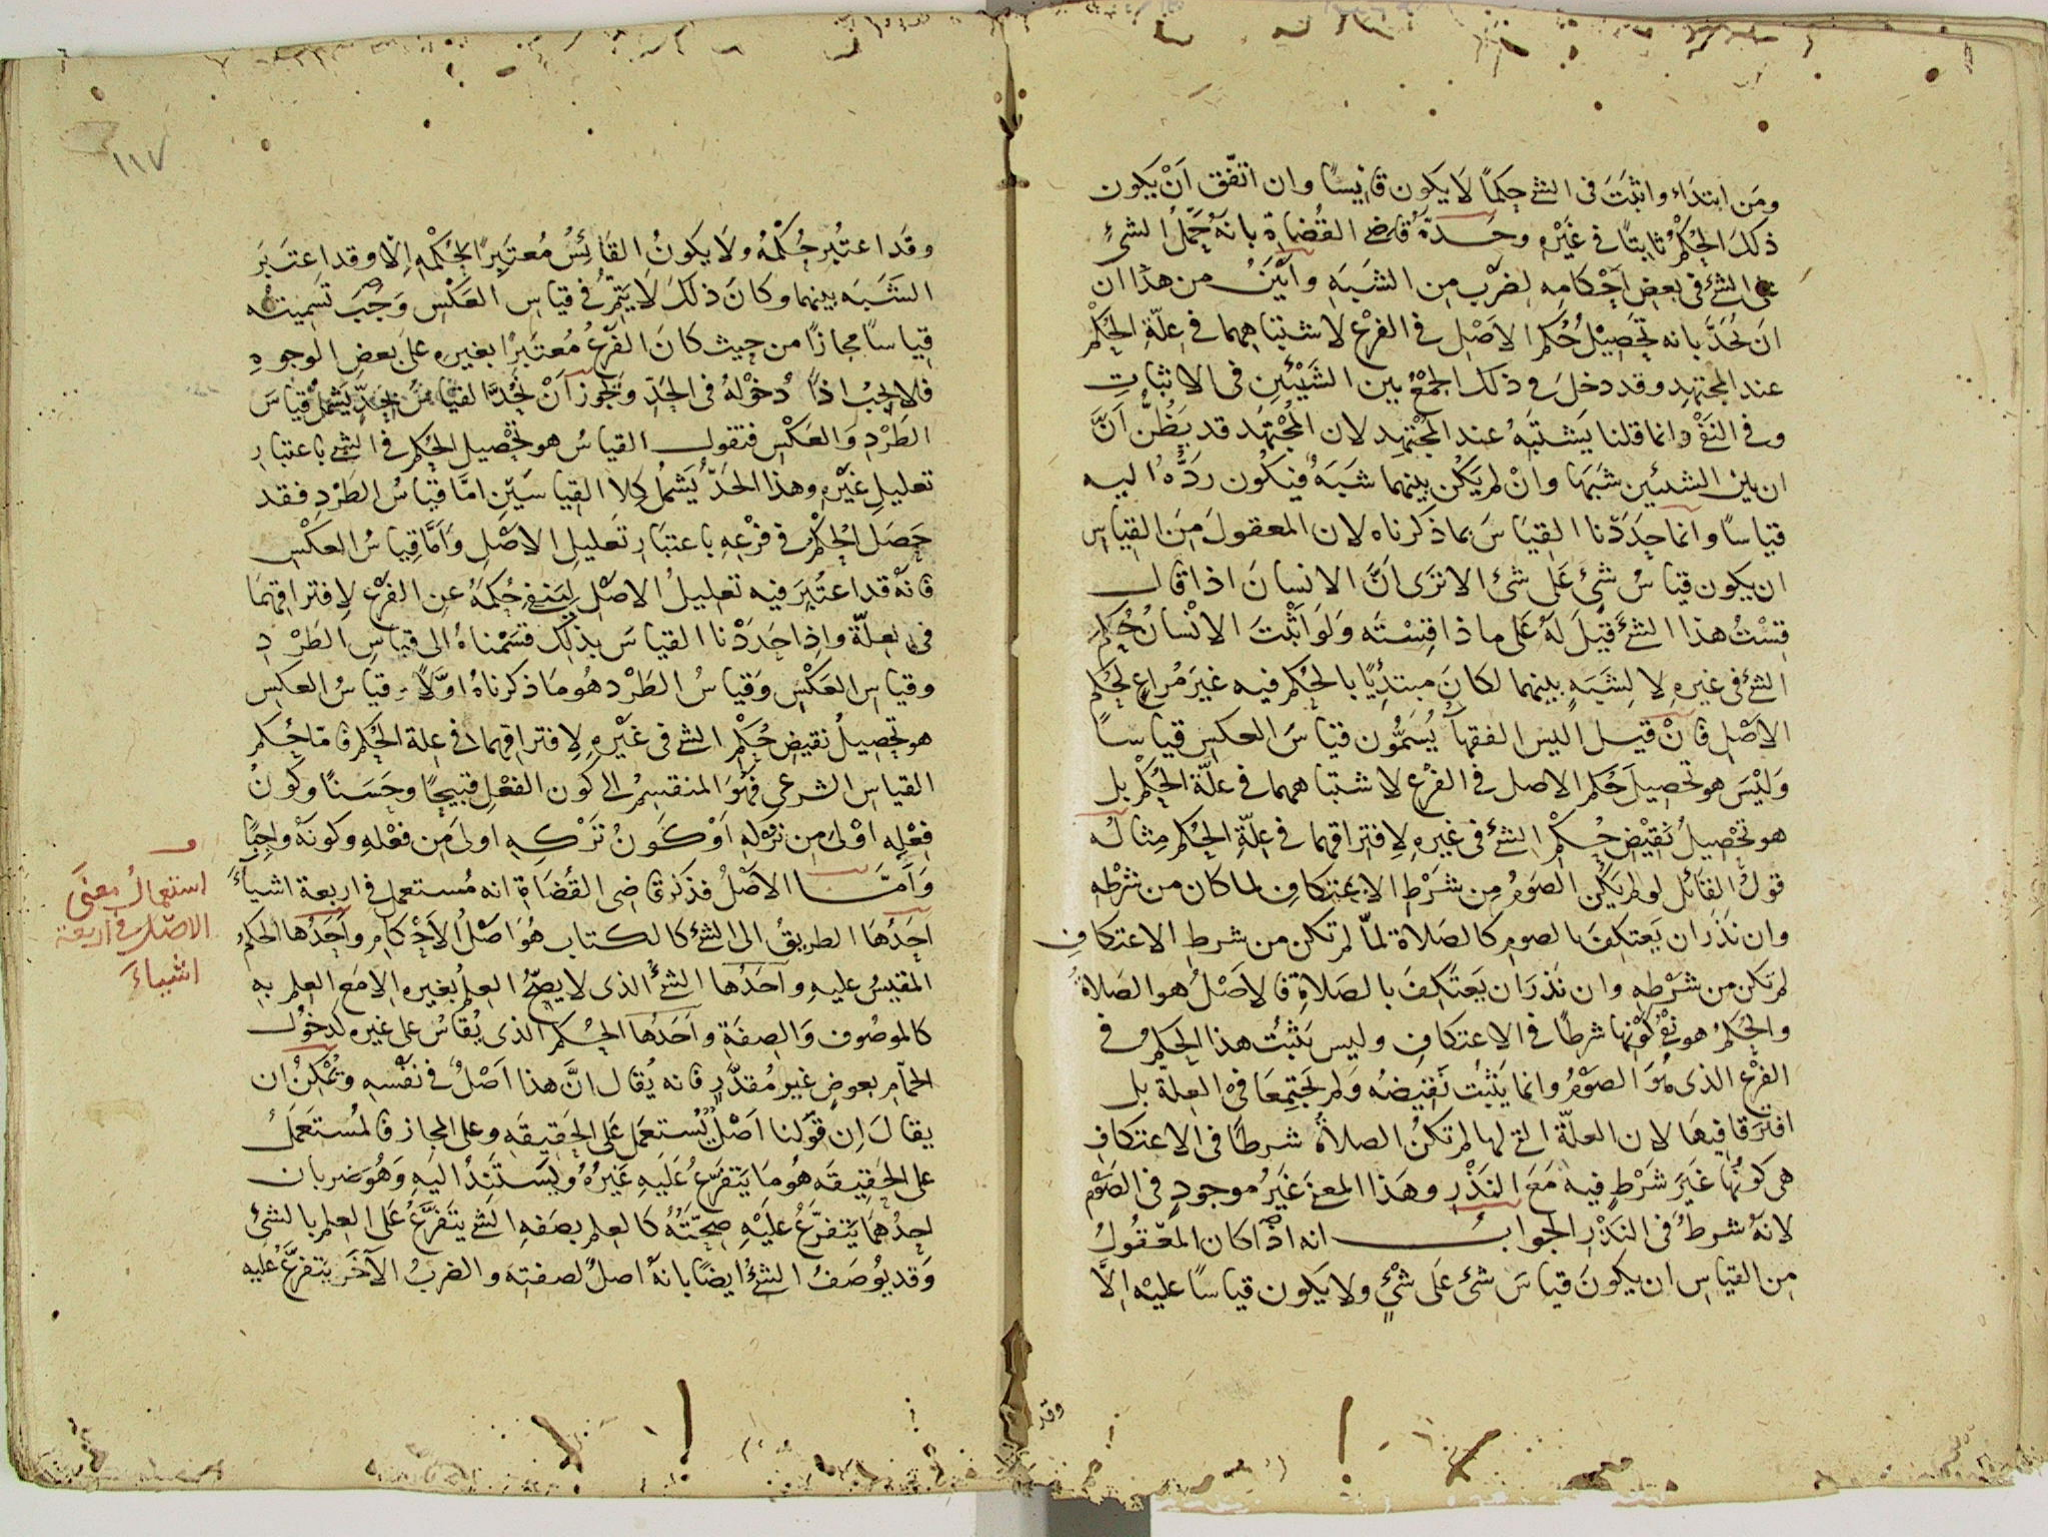 ومَن ابتدَاء واثبَتَ فى الشئ حكماً لَا يكون قائِسًا وان اتفّق اَنْ يكون
ذلكَ الحُكمُ ثابِتًا فى غَيْرِه وحَدّهُ قاضى القُضاة بانهُ حَمْلُ الشئِ
على الشئ فى بعضِ اَحْكامِه لضَرْبٍ مِن الشَبَهِ وأبْيَنُ من هذا ان
ان يُحَدَّ بانه تحَصِيْلُ حُكمِ الاَصْلِ فى الفرْع لاشتباههما فى عِلّةِ الحُكْمِ
عند المجتهدِ وقد دخلَ فى ذلكَ الجمْعُ بين الشَيْئَينِ فى الاثباتِ
وفى النَفْى وانما قلنا يَشتَبِهُ عند المجْتهِد لان المُجْتهَد قد يَظُنُّ اَنَّ
ان بين الشيئين شبَهًا وانْ لم يَكُن بينهما شَبَهٌ فيَكُون رَدُّهُ اليه
قياسًا وانما حدَدْنا القِيَاسَ بما ذكرناه لان المعقولَ مِنَ القِياسِ
ان يكون قياسُ شىٍٔ عَلى شئ الا ترَى اَنَّ الانسانَ اذا قال
قِسْتُ هذا الشئَ قيْلَ لَهُ عَلى ماذا قِسْتَه وَلَو اَثْبَتَ الانْسانُ حُكمَ
الشئ فى غيره لا لِشَبَهٍ بينهما لكانَ مبتدِئًا بالحُكم فيه غيرَ مُراعٍ لحُكمِ
الاَصْلِ فانْ قيل اليس الفقهآُ يُسَمُّون قياسَ العكسِ قياسًا
وَليْسَ هو تحصيلَ حُكمِ الاصل فى الفَرْع لاشتباههما فى علّة الحُكْمِ بل
هو تحْصِيلُ نَقِيْضِ حُكْمِ الشئ فى غيرِه لِافتراقهما فى عِلّةِ الحُكم مِثالُه
قولُ القائل لو لم يَكُنِ الصَومُ مِن شَرْطِ الاعتكافِ لما كان من شرْطه
وان نَذَرَ ان يَعتكِفَ بالصومِ كالصَلاة لمّا لم تكن من شرطِ الاعتكافِ
لم تكن من شَرْطِه وان نَذَرَ ان يَعْتَكِفَ بالصَلاةِ فالاَصْلُ هو الصَلاةُ
والحُكمُ هو نفْىُ كَوْنها شرطًا فى الاعتكافِ وليس يَثبُتُ هذا الحكمُ فى
الفرْعِ الذى هُوَ الصَوْمُ وانما يَثْبُتُ نَقِيضُه وَلم يَجتمِعَا فى العِلّة بل
افتَرَقا فيها لان العلّةَ التى لها لم تكنْ الصلاةُ شرطًا فى الاعتكافِ
هى كَونُها غَيرَ شَرْطٍ فيه مَعَ النَذْرِ وهَذا المعنى غَيْرُ موجودٍ فى الصَوْم
لانهُ شرطٌ فى النَذْرِ الجوابُ انه اذا كان المعْقُولُ
مِن القياس ان يكونَ قياسَ شئ عَلى شئٍ ولا يَكون قياسًا عليْه اِلَّا
وقد
١١٧
وقَد اعتُبر حُكْمُهُ ولَا يكونُ القَائسُ مُعتَبِرًا لحُكْمِه اِلّا وقد اعتَبَرَ
الشَبَه بينهما وكانَ ذلكَ لَا يَتِمّ فى قياسِ العَكْسِ وَجَبَ تسميتُه
قياسًا مجازًا من حيث كانَ الفَرْعُ مُعتَبَرًا بغيرِه علَى بعضِ الوجوهِ
فلا يجبُ اذاً دُخوْلهُ فى الحَدِّ ويجوز اَنْ يُحَدَّ القياسُ بحَدٍّ يَشملُ قياسَ
الطَرْدِ وَالعَكْسِ فنقول القياسُ هو تحْصيل الحُكمِ فى الشئِ باعتبارِ
تعليلِ غيْرِه وهذا الحَدّ يُشمُل كِلا القِياسَيْنِ امَّا قِياسُ الطَرْدِ فقد
حَصَلَ الحُكْمُ فى فرْعِه باعتبَارِ تَعليلِ الاَصْلِ وَاَمَّا قِياسُ العَكْسِ
فانهْ قد اعتُبِرَ فيه تعلِيلُ الاصْلِ لِيَنفى حُكمَهُ عنِ الفَرْعِ لِافترَاقِهِمَا
فى العِلّة واِذا حَدَدْنا القياسَ بذلك قسَمْناهُ الى قياسِ الطَرْدِ
وقياسِ العَكْسِ وَقياسُ الطَرْد هُو مَا ذكرناهُ اوّلاً وقياسُ العكسِ
هو تحصيلُ نقيضِ حُكْمِ الشئ فى غَيْرِهِ لِافتراقهما فى عِلة الحُكم فامّا حُكم
القياسِ الشرعىِ فهُوَ المنقسِمُ الى كَون الفعْلِ قبيحًا وحَسَنًا وكَونُ
فِعْلِه اوْلى مِن تَرْكهِ اَوْ كَوَنُ تَرْكِهِ اولى مِن فعْلهِ وكونهُ واجبًا
وَاَمَّا الاَصْلُ فذكرَ قاضى القُضَاةِ انه مُستعمل فى اربعةِ اشيآءَ
اَحَدُهَا الطريقُ الى الشئِ كالكتاب هُوَ اصْلُ الاَحْكامِ واَحَدُها الحكمُ
المقيسُ عليهِ واَحَدُها الشئُ الذى لا يصِحُّ العِلمُ بغيره الا مَع العِلم بهِ
كالموصُوف وَالصِفَةِ واَحَدُها الحُكمُ الذى يُقاسُ على غيره كدخوُل
الحمّام بعوضٍ غيرِ مُقدَّرٍ فانه يُقال انَّ هذا اَصْلٌ فى نفسِه ويُمكْنُ ان
يقالَ اِن قوَلنا اَصْلٌ يُستعمَل عَلى الحَقِيقَه وعلى المجاز فالمُستَعمَلُ
على الحَقِيقَه هُو مَا يَتفرّعُ عَلَيهِ غَيْرُهُ ويَستَنِدُ اليَهِ وَهُو ضربان
احدُهُمَا يَتفرّعُ عليْهِ صِحّتُهُ كالعِلم بصَفهِ الشئ يتَفرَّعُ عَلى العِلم بالشئ
وَقد يُوصَفُ الشئُ ايضًا بانهُ اصلٌ لصفتِه والضربُ الآخَر يتفرَّعُ عليه
استعمالُ معنَى
الاصْل فى اربعة
اشياءَ